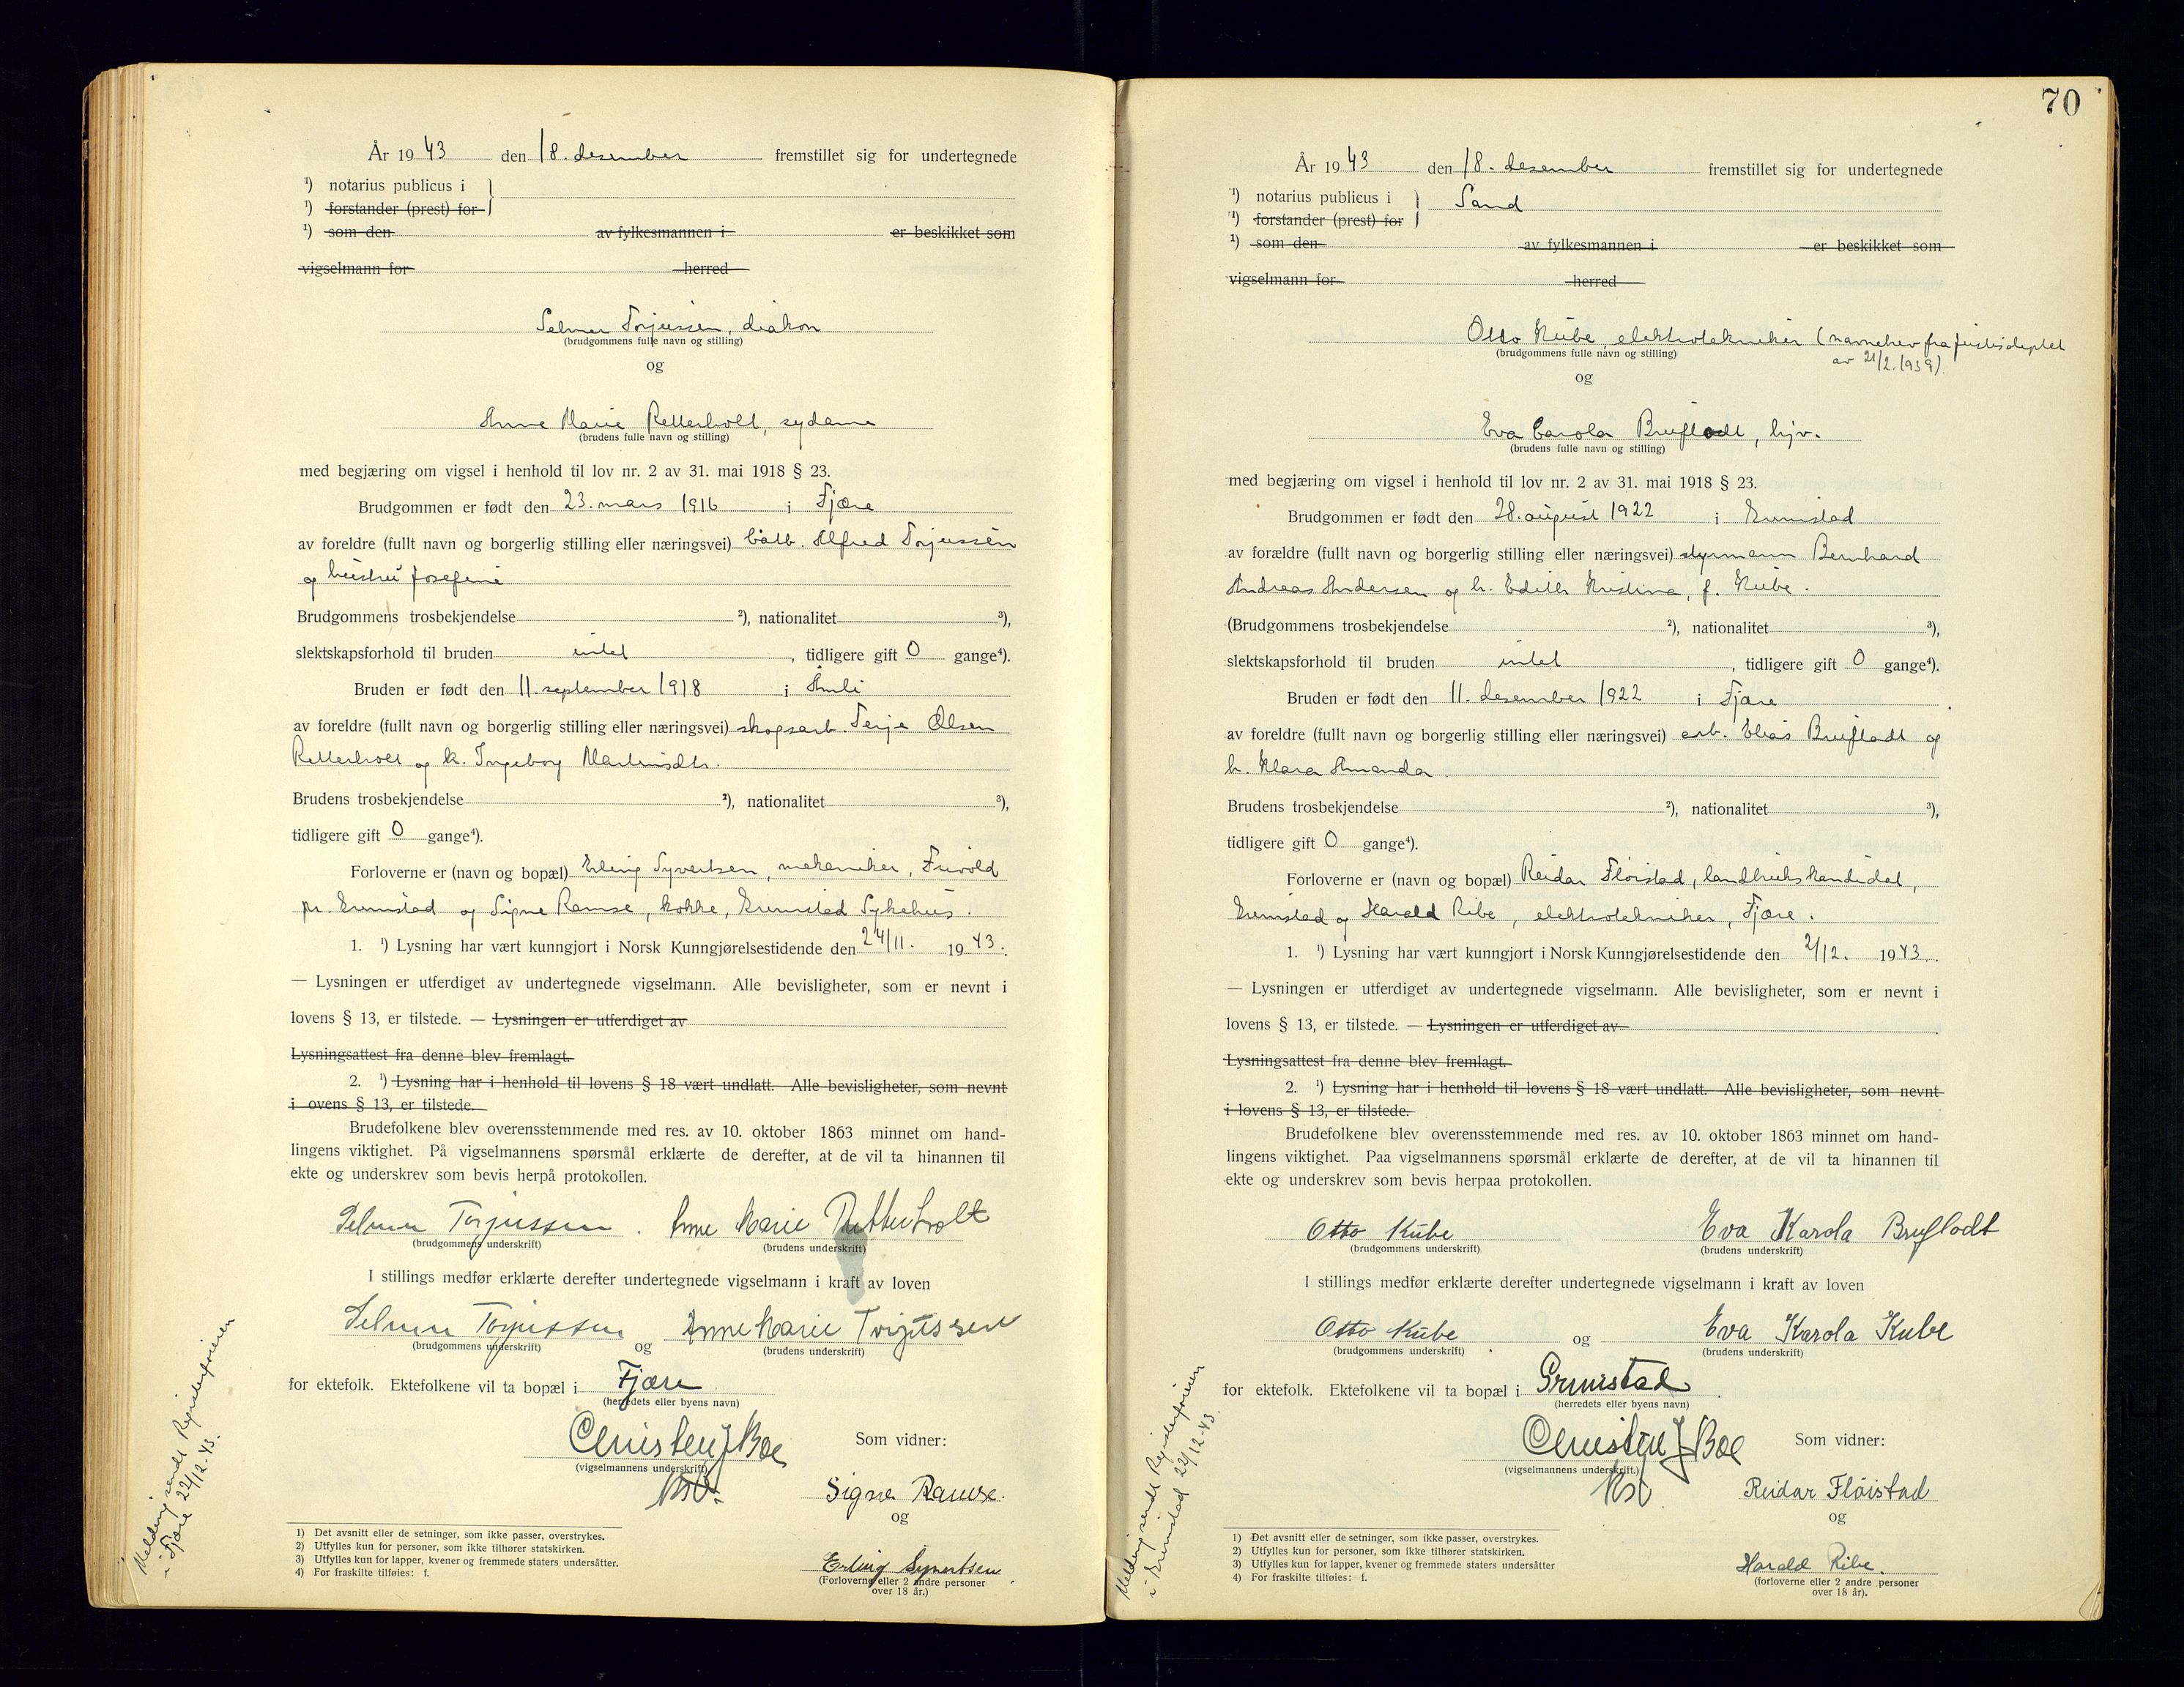 År 19 43 den 18. desember fremstillet sig for undertegnede
¹) notarius publicus i
¹) forstander (prest) for
¹) som den av fylkesmannen i er beskikket som
vigselmann for herred
Selmer Torjussen, diakon
(brudgommens fulle navn og stilling)
og
Anne Marie Retterholt, sydame
(brudens fulle navn og stilling)
med begjæring om vigsel i henhold til lov nr. 2 av 31. mai 1918 § 23.
Brudgommen er født den 23. mars 1916 i Fjære
av foreldre (fullt navn og borgerlig stilling eller næringsvei) båtb. Alfred Torjussen
og hustru Josefine
Brudgommens trosbekjendelse ²), nationalitet ³),
slektskapsforhold til bruden intet , tidligere gift 0 gange⁴).
Bruden er født den 11. september 1918 i Åmli
av foreldre (fullt navn og borgerlig stilling eller næringsvei) skogsarb. Terje Olsen
Retterholt og h. Ingeborg Martinsdtr.
Brudens trosbekjendelse ²), nationalitet ³),
tidligere gift 0 gange⁴).
Forloverne er (navn og bopæl) Erling Syvertsen, mekaniker, Frivold
pr. Grimstad og Signe Ramse, kokke, Grimstad Sykehus.
1. ¹) Lysning har vært kunngjort i Norsk Kunngjørelsestidende den 24/11. 19 43.
— Lysningen er utferdiget av undertegnede vigselmann. Alle bevisligheter, som er nevnt i
lovens § 13, er tilstede. — Lysningen er utferdiget av
Lysningsattest fra denne blev fremlagt.
2. ¹) Lysning har i henhold til lovens § 18 vært undlatt. Alle bevisligheter, som nevnt
i ovens § 13, er tilstede.
Brudefolkene blev overensstemmende med res. av 10. oktober 1863 minnet om hand-
lingens viktighet. På vigselmannens spørsmål erklærte de derefter, at de vil ta hinannen til
ekte og underskrev som bevis herpå protokollen.
Selmer Torjussen. Anne Marie Retterholt
(brudgommens underskrift) (brudens underskrift)
I stillings medfør erklærte derefter undertegnede vigselmann i kraft av loven
Selmer Torjussen og Anne Marie Torjussen
(brudgommens underskrift) (brudens underskrift)
for ektefolk. Ektefolkene vil ta bopæl i Fjære
(herredets eller byens navn)
Christen J Boe Som vidner:
(vigselmannens underskrift)
Signe Ramse.
og
Erling Syvertsen.
(Forloverne eller 2 andre personer
over 18 år.)
1) Det avsnitt eller de setninger, som ikke passer, overstrykes.
2) Utfylles kun for personer, som ikke tilhører statskirken.
3) Utfylles kun for lapper, kvener og fremmede staters undersåtter.
4) For fraskilte tilføies: f.
Melding sendt Registerføreren
i Fjære 22/12-43.
70
År 19 43 den 18. desember fremstillet sig for undertegnede
¹) notarius publicus i Sand
¹) forstander (prest) for
¹) som den av fylkesmannen i er beskikket som
vigselmann for herred
Otto Kube, elektrotekniker (navnebrev fra justisdeptet
av 21/2.1939).
(brudgommens fulle navn og stilling)
og
Eva Carola Brufladt, hjv.
(brudens fulle navn og stilling)
med begjæring om vigsel i henhold til lov nr. 2 av 31. mai 1918 § 23.
Brudgommen er født den 28. august 1922 i Grimstad
av forældre (fullt navn og borgerlig stilling eller næringsvei) styrmann Bernhard
Andreas Andersen og h. Edith Kristine, f. Kube.
(Brudgommens trosbekjendelse ²), nationalitet ³),
slektskapsforhold til bruden intet , tidligere gift 0 gange⁴).
Bruden er født den 11. desember 1922 i Fjære
av foreldre (fullt navn og borgerlig stilling eller næringsvei) arb. Elias Brufladt og
h. Klara Amanda
Brudens trosbekjendelse ²), nationalitet ³),
tidligere gift 0 gange⁴).
Forloverne er (navn og bopæl) Reidar Fløistad, landbrukskandidat,
Grimstad og Harald Ribe, elektrotekniker, Fjære.
1. ¹) Lysning har vært kunngjort i Norsk Kunngjørelsestidende den 2/12. 19 43.
— Lysningen er utferdiget av undertegnede vigselmann. Alle bevisligheter, som er nevnt i
lovens § 13, er tilstede. — Lysningen er utferdiget av
Lysningsattest fra denne blev fremlagt.
2. ¹) Lysning har i henhold til lovens § 18 vært undlatt. Alle bevisligheter, som nevnt
i lovens § 13, er tilstede.
Brudefolkene blev overensstemmende med res. av 10. oktober 1863 minnet om hand-
lingens viktighet. Paa vigselmannens spørsmål erklærte de derefter, at de vil ta hinannen til
ekte og underskrev som bevis herpaa protokollen.
Otto Kube Eva Karola Brufladt
(brudgommens underskrift) (brudens underskrift)
I stillings medfør erklærte derefter undertegnede vigselmann i kraft av loven
Otto Kube og Eva Karola Kube
(brudgommens underskrift) (brudens underskrift)
for ektefolk. Ektefolkene vil ta bopæl i Grimstad.
(herredets eller byens navn)
Christen J Boe Som vidner:
(vigselmannens underskrift.)
Reidar Fløistad
og
Harald Ribe.
(forloverne eller 2 andre personer
over 18 år).
1) Det avsnitt eller de setninger, som ikke passer, overstrykes.
2) Utfylles kun for personer, som ikke tilhører statskirken.
3) Utfylles kun for lapper, kvener og fremmede staters undersåtter
4) For fraskilte tilføies: f.
Melding sendt Registerføreren
i Grimstad 22/12-43.